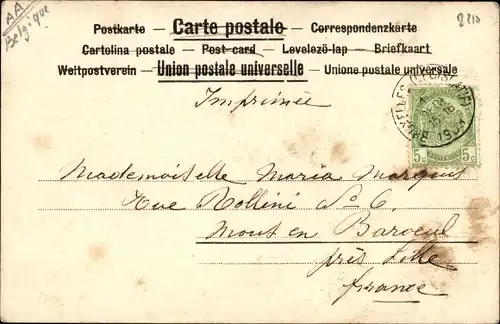 AA
Belgique
Postkarte — Carte postale — Correspondenzkarte
Cartolina postale — Post-card — Levelező-lap — Briefkaart
Weltpostverein — Union postale universelle — Unione postale universale
Imprimée
BRUXELLES
5c 5c
Mademoiselle Maria Marquis
Rue Rollini No 6.
Mont en Baroeul
près Lille
France